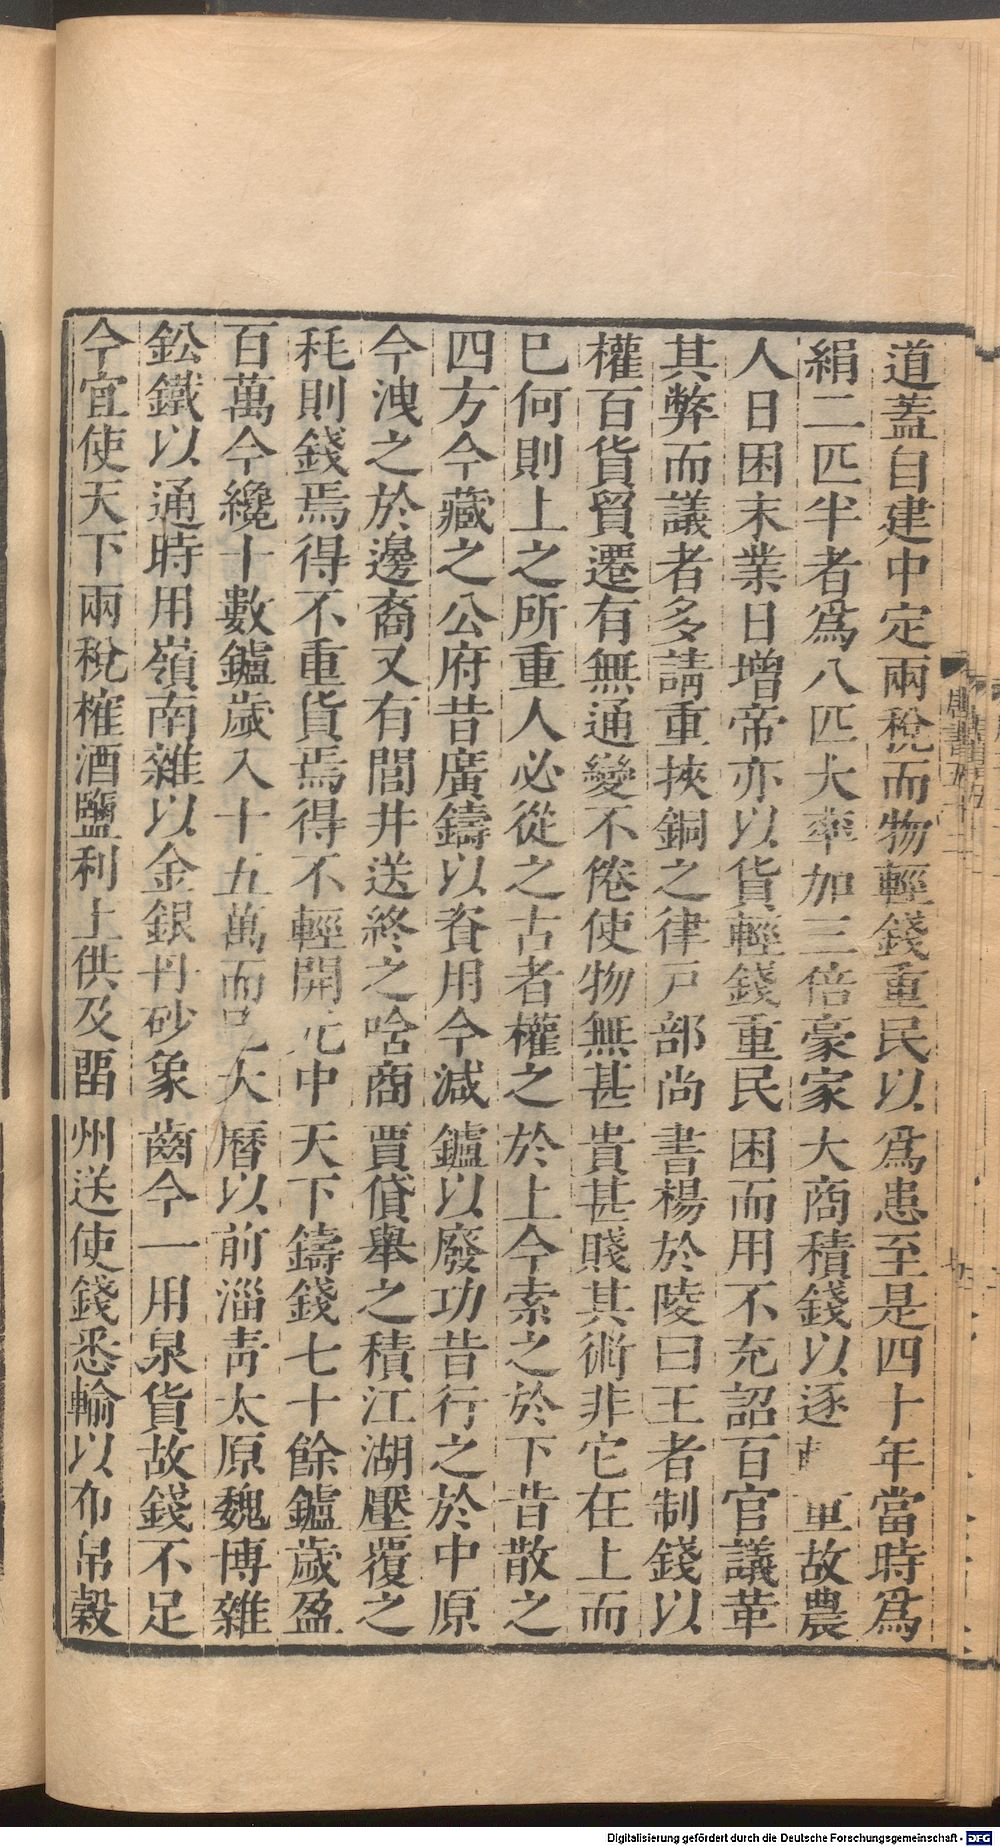 道蓋自建中定兩稅而物輕錢重民以爲患至是四十年當時爲
絹二匹半者爲八匹大率加三倍豪家大商積錢以逐重故農
人日困末業日增帝亦以貨輕錢重民困而用不充詔百官議革
其弊而議者多請重挾銅之律戸部尚書楊於陵曰王者制錢以
權百貨貿遷有無通變不倦使物無甚貴甚賤其術非它在上而
已何則上之所重人必從之古者權之於上今索之於下昔散之
四方今藏之公府昔廣鑄以資用今減鑪以廢功昔行之於中原
今洩之於邊裔又有閭井送終之唅商賈貸舉之積江湖壓覆之
耗則錢焉得不重貨焉得不輕開元中天下鑄錢七十餘鑪歲盈
百萬今纔十數鑪歲入十五萬而大曆以前淄青太原魏博雜
鈆鐵以通時用嶺南雜以金銀丹砂象齒今一用泉貨故錢不足
今宜使天下兩稅榷酒鹽利上供及畱州送使錢悉輸以布帛穀
唐書五十二
Digitalisierung gefördert durch die Deutsche Forschungsgemeinschaft - DFG